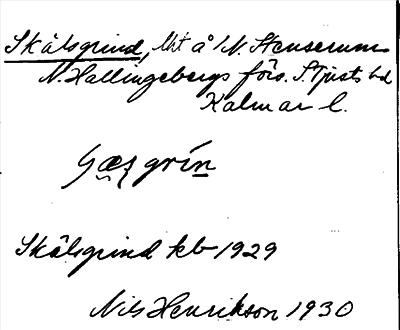 Skälsgrind, lht å N. Stenserum
N. Hallingebergs förs. S. Tjusts hd
Kalmar l.
grín
Skälsgrind kb 1929
Nils Henrikson 1930